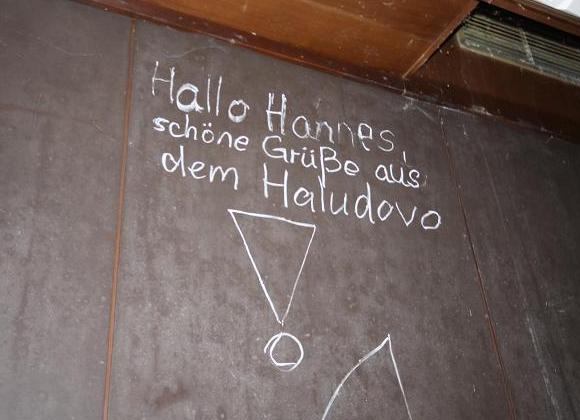 Hallo Hannes,
schöne Grüße aus
dem Haludovo
!